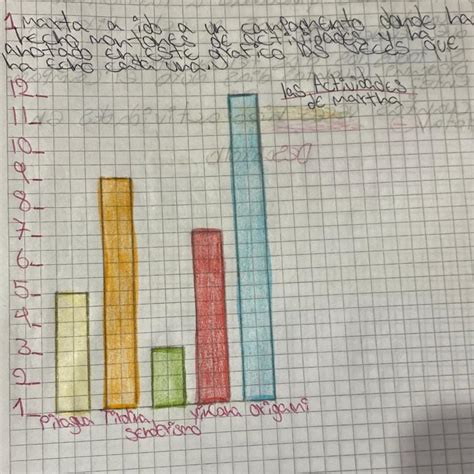 1. marta a ido a un campamento donde ha
hecho montones de actividades y ha
Anotado en este grafico las veces que
ha echo cada una.
las Actividades
de martha
12
11
10
9
8
7
6
5
4
3
2
1
piragua
Tirolina
senderismo
yincana
origami